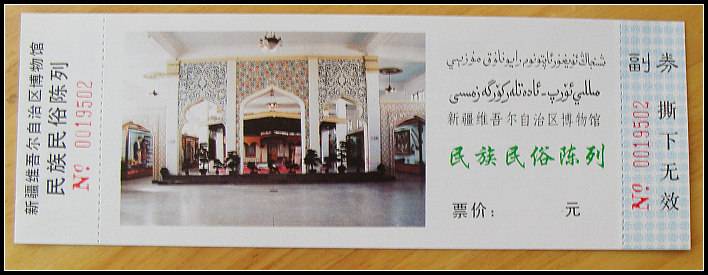 新疆维吾尔自治区博物馆
民族民俗陈列
Nº 0019502
شىنجاڭ ئۇيغۇر ئاپتونوم رايونلۇق مۇزېيى
مىللىي ئۆرپ-ئادەتلەر كۆرگەزمىسى
新疆维吾尔自治区博物馆
民族民俗陈列
票价: 元
副券
撕下无效
Nº 0019502